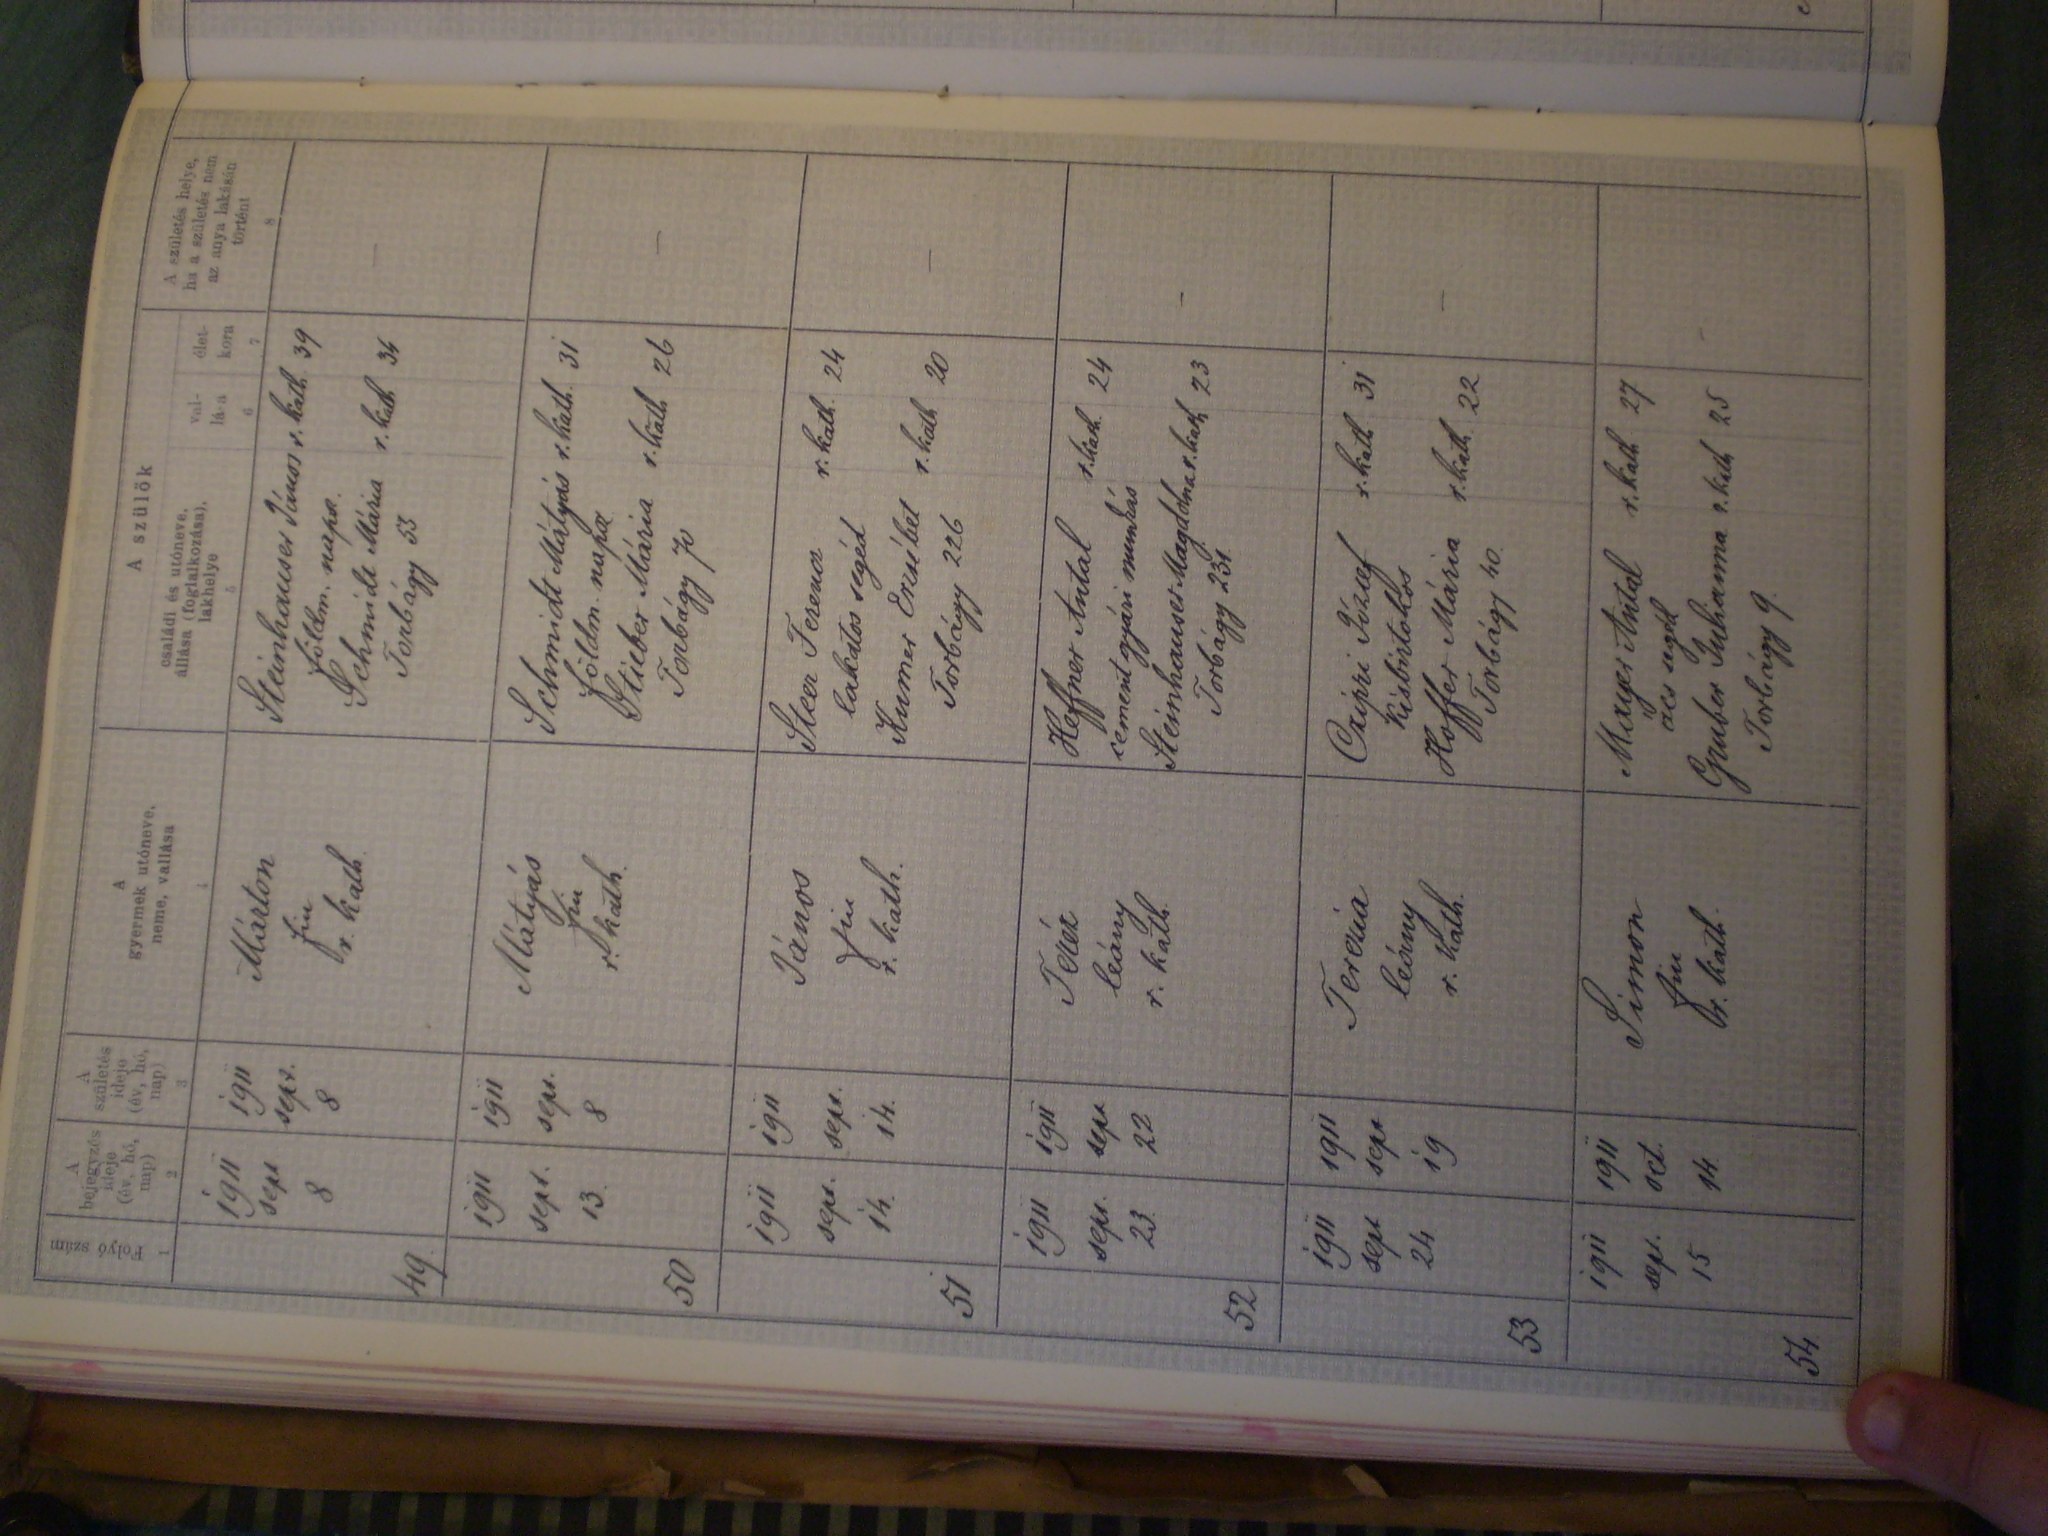 Folyó szám
1
A
bejegyzés
ideje
(év, hó,
nap)
2
A
születés
ideje
(év, hó,
nap)
3
A
gyermek utóneve,
neme, vallása
4
A szülők
családi és utóneve,
állása (foglalkozása),
lakhelye
5
val-
lása
6
élet-
kora
7
A születés helye,
ha a születés nem
az anya lakásán
történt
8
49.
1911
sept
8
1911
sept.
8
Márton
fiu
r. kath.
Steinhauser János r. kath. 39
földm. naps.
Schmidt Mária r. kath 34
Torbágy 53
—
50
1911
sept.
13.
1911
sept.
8
Mátyás
fiu
r. kath.
Schmidt Mátyás r. kath. 31
földm. napsz
Stieber Mária r. kath 26
Torbágy 70
—
51
1911
sept.
14.
1911
sept.
14.
János
fiu
r. kath.
Steer Ferenc r. kath. 24
lakatos segéd
Kumer Erzsébet r. kath 20
Torbágy 226
—
52
1911
sept.
23.
1911
sept
22
Teréz
leány
r. kath.
Heffner Antal r. kath. 24
cement gyári munkás
Steinhauser Magdolna r. kath 23
Torbágy 231
—
53
1911
sept
24
1911
sept
19
Terézia
leány
r. kath.
Czippi József r. kath 31
kisbirtokos
Hoffer Mária r. kath. 22
Torbágy 40.
—
54
1911
sept.
15
1911
oct.
14.
Simon
fiu
r. kath.
Mayer Antal r. kath 27
ács segéd
Gruber Juhanna r. kath 25
Torbágy 9.
-